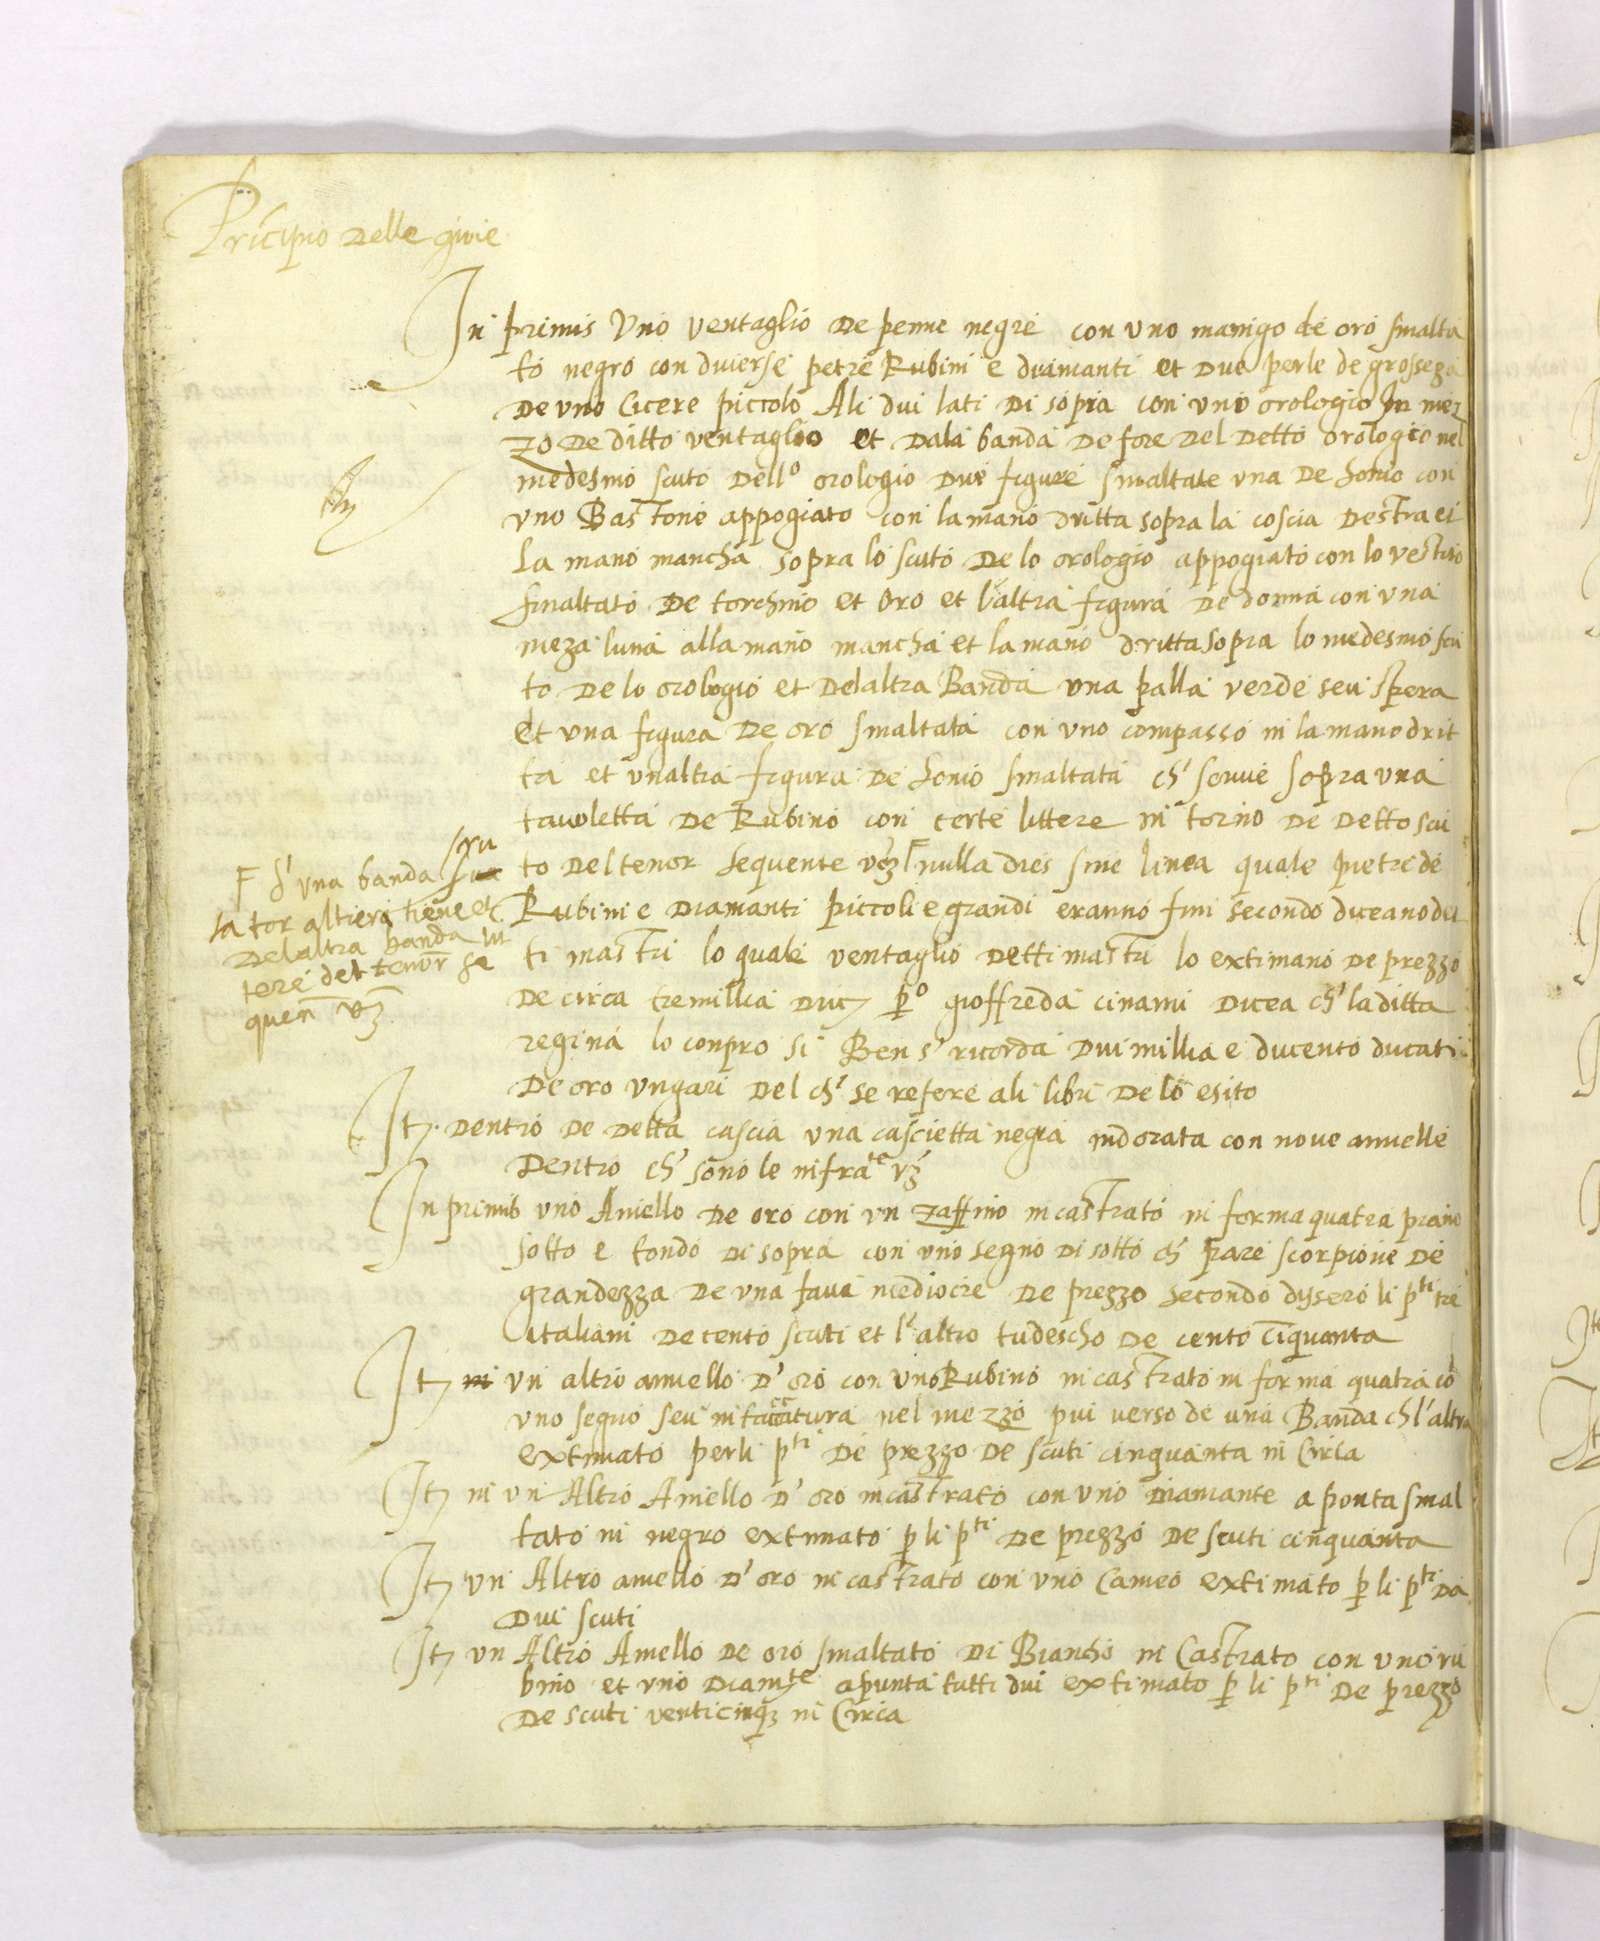 Principio delle gioie
In primis Uno ventaglio de penne negre con uno manigo de oro smalta
to negro con diverse petre Rubini e diiamanti et due perle de grosseza
de uno Cicere piccolo Ali dui lati di sopra con uno orologio In mez
zo de ditto ventaglio et dala banda de fore del detto orologio nel
medesmo scuto dello orologio due figure smaltate una de homo con
uno Bastone appogiato con la mano dritta sopra la coscia destra et
La mano mancha sopra lo scuto de lo orologio appogiato con lo vestito
smaltato de torchino et oro et l'altra figura de donna con una
meza luna alla mano mancha et la mano dritta sopra lo medesmo scu
to de lo orologio et del altra Banda una palla verde seu spera
et una figura de oro smaltata con uno compasso in la mano drit
ta et unaltra figura de homo smaltata ch' scrive sopra una
tavoletta de Rubino con certe littere in torno de detto scu
to del tenor sequente vz F nulla dies sine linea quale pietre de
Rubini e diamanti piccoli e grandi eranno fini secondo diceano dit
ti mastri lo quale ventaglio detti mastri lo extimano de prezzo
de circa tre millia duc p° gioffreda cinami dicea ch' la ditta
regina lo conpro si Ben s' ricorda dui millia e ducento ducati
de oro ungari del ch' se refere ali libri de lo esito
F d' una banda scu
la tor altiera tiene et
del altra banda lit
tere del tenor se
quen vz
It dentro de detta cascia una cascietta negra indorata con nove annelle
dentro ch' sono le infrae vz
In primis uno Aniello de oro con un zaffino incastrato in forma quatra piano
sotto e tondo di sopra con uno segno di sotto ch' pare scorpione de
grandezza de una fava mediocre de prezzo secondo dissero li pti tre
italiani de cento scuti et l' altro tudescho de cento ciquanta
It un altro annello d' oro con uno Rubino incastrato in forma quatra co
uno segno seu infaccatura nel mezzo piu verso de una Banda ch l'altra
extimato per li pti de prezzo de scuti cinquanta in Circa
It in un Altro Aniello d' oro incastrato con uno diamante a ponta smal
tato in negro extimato p li pti de prezzo de scuti cinquanta
It un Altro anello d' oro incastrato con uno Cameo extimato p li pti da
dui scuti
It un Altro Anello de oro smaltato di Biancho in Castrato con uno ru
bino et uno diamte apunta tutti dui extimato p li pti de prezzo
de scuti venticinq in Circa